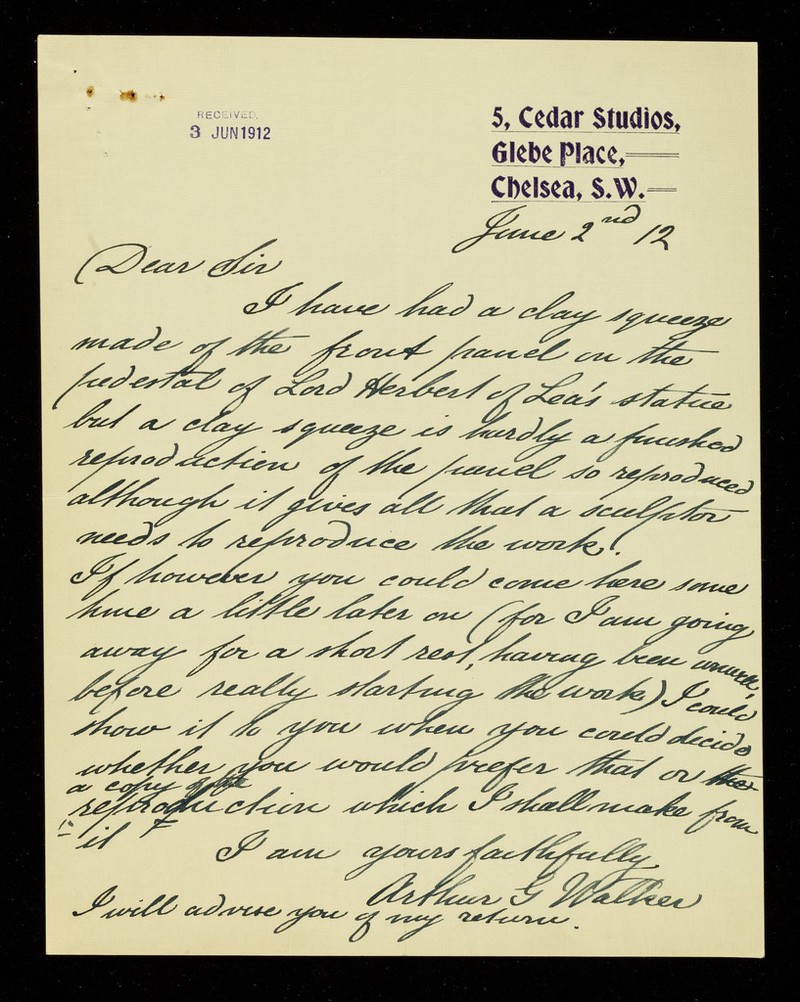 RECEIVED.
3 JUN 1912
5, Cedar Studios,
Glebe Place,
Chelsea, S.W.
June 2nd 12
Dear Sir
I have had a clay squeeze
made of the front panel on the
pedestal of Lord Herbert of Lea's statue
but a clay squeeze is hardly a finished
reproduction of the panel so reproduced
although it gives all that a sculptor
needs to reproduce the work.
If however you could come here some
time a little later on (for I am going
away for a short rest, having been unwell,
before really starting the work) I could
show it to you when you could decide
whether you would prefer that or the
a copy of the
reproduction which I shall make from
it
I am yours faithfully
Arthur G Walker
I will advise you of my return.